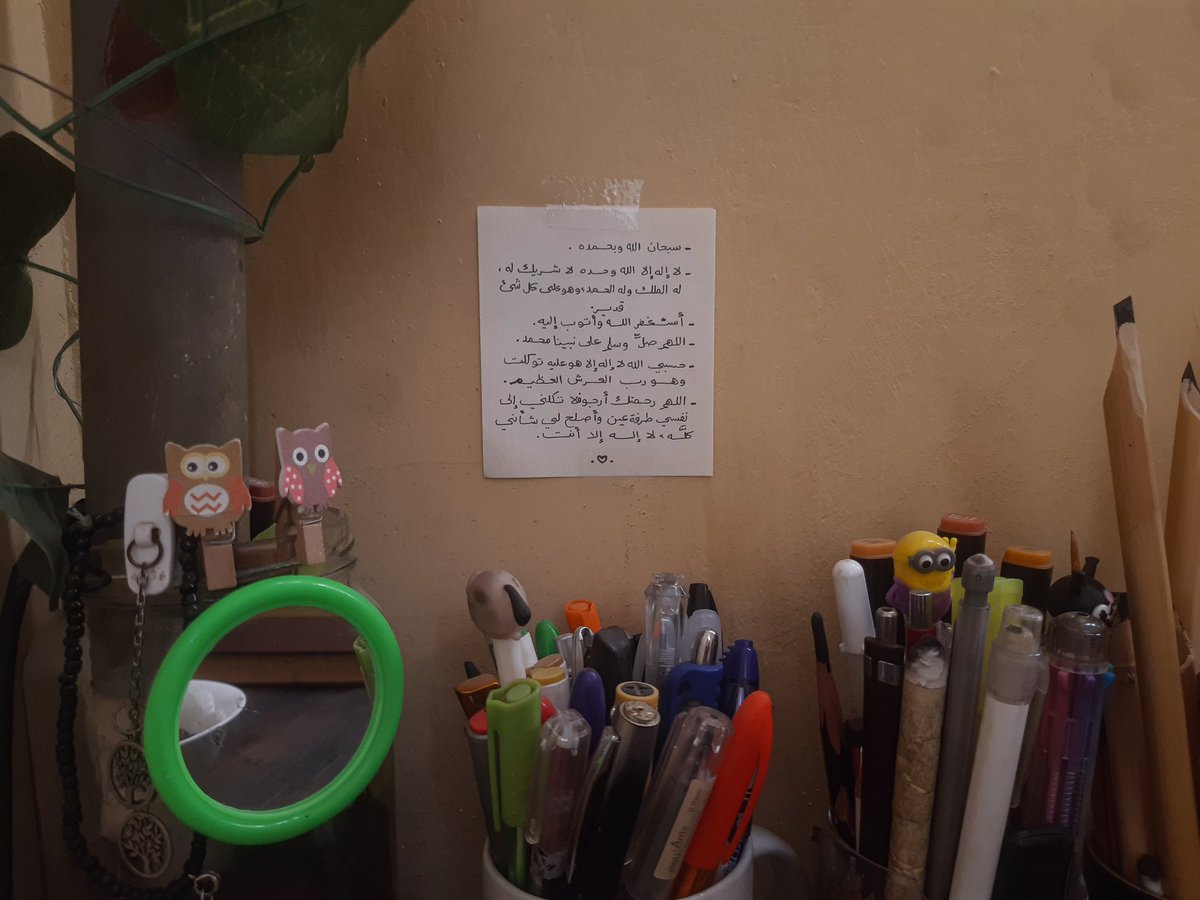 - سبحان الله وبحمده .
- لا إله إلا الله وحده لا شريك له ،
له الملك وله الحمد ، وهو على كل شئ
قدير .
- أستغفر الله وأتوب إليه .
- اللهم صلِّ وسلم على نبينا محمد .
- حسبي الله لا إله إلا هو عليه توكلت
وهو رب العرش العظيم .
- اللهم رحمتك أرجو فلا تكلني إلى
نفسي طرفة عين وأصلح لي شأني
كلَّه ، لا إله إلا أنت .